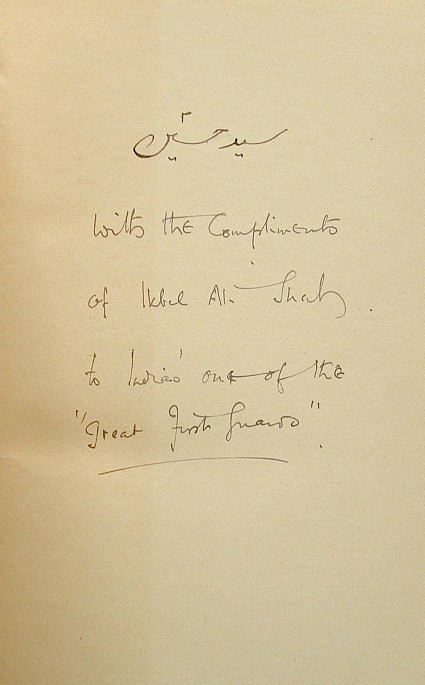 سید حسین
With the Compliments
of Ikbal Ali Shah.
to India's one of the
"Great First Guards".